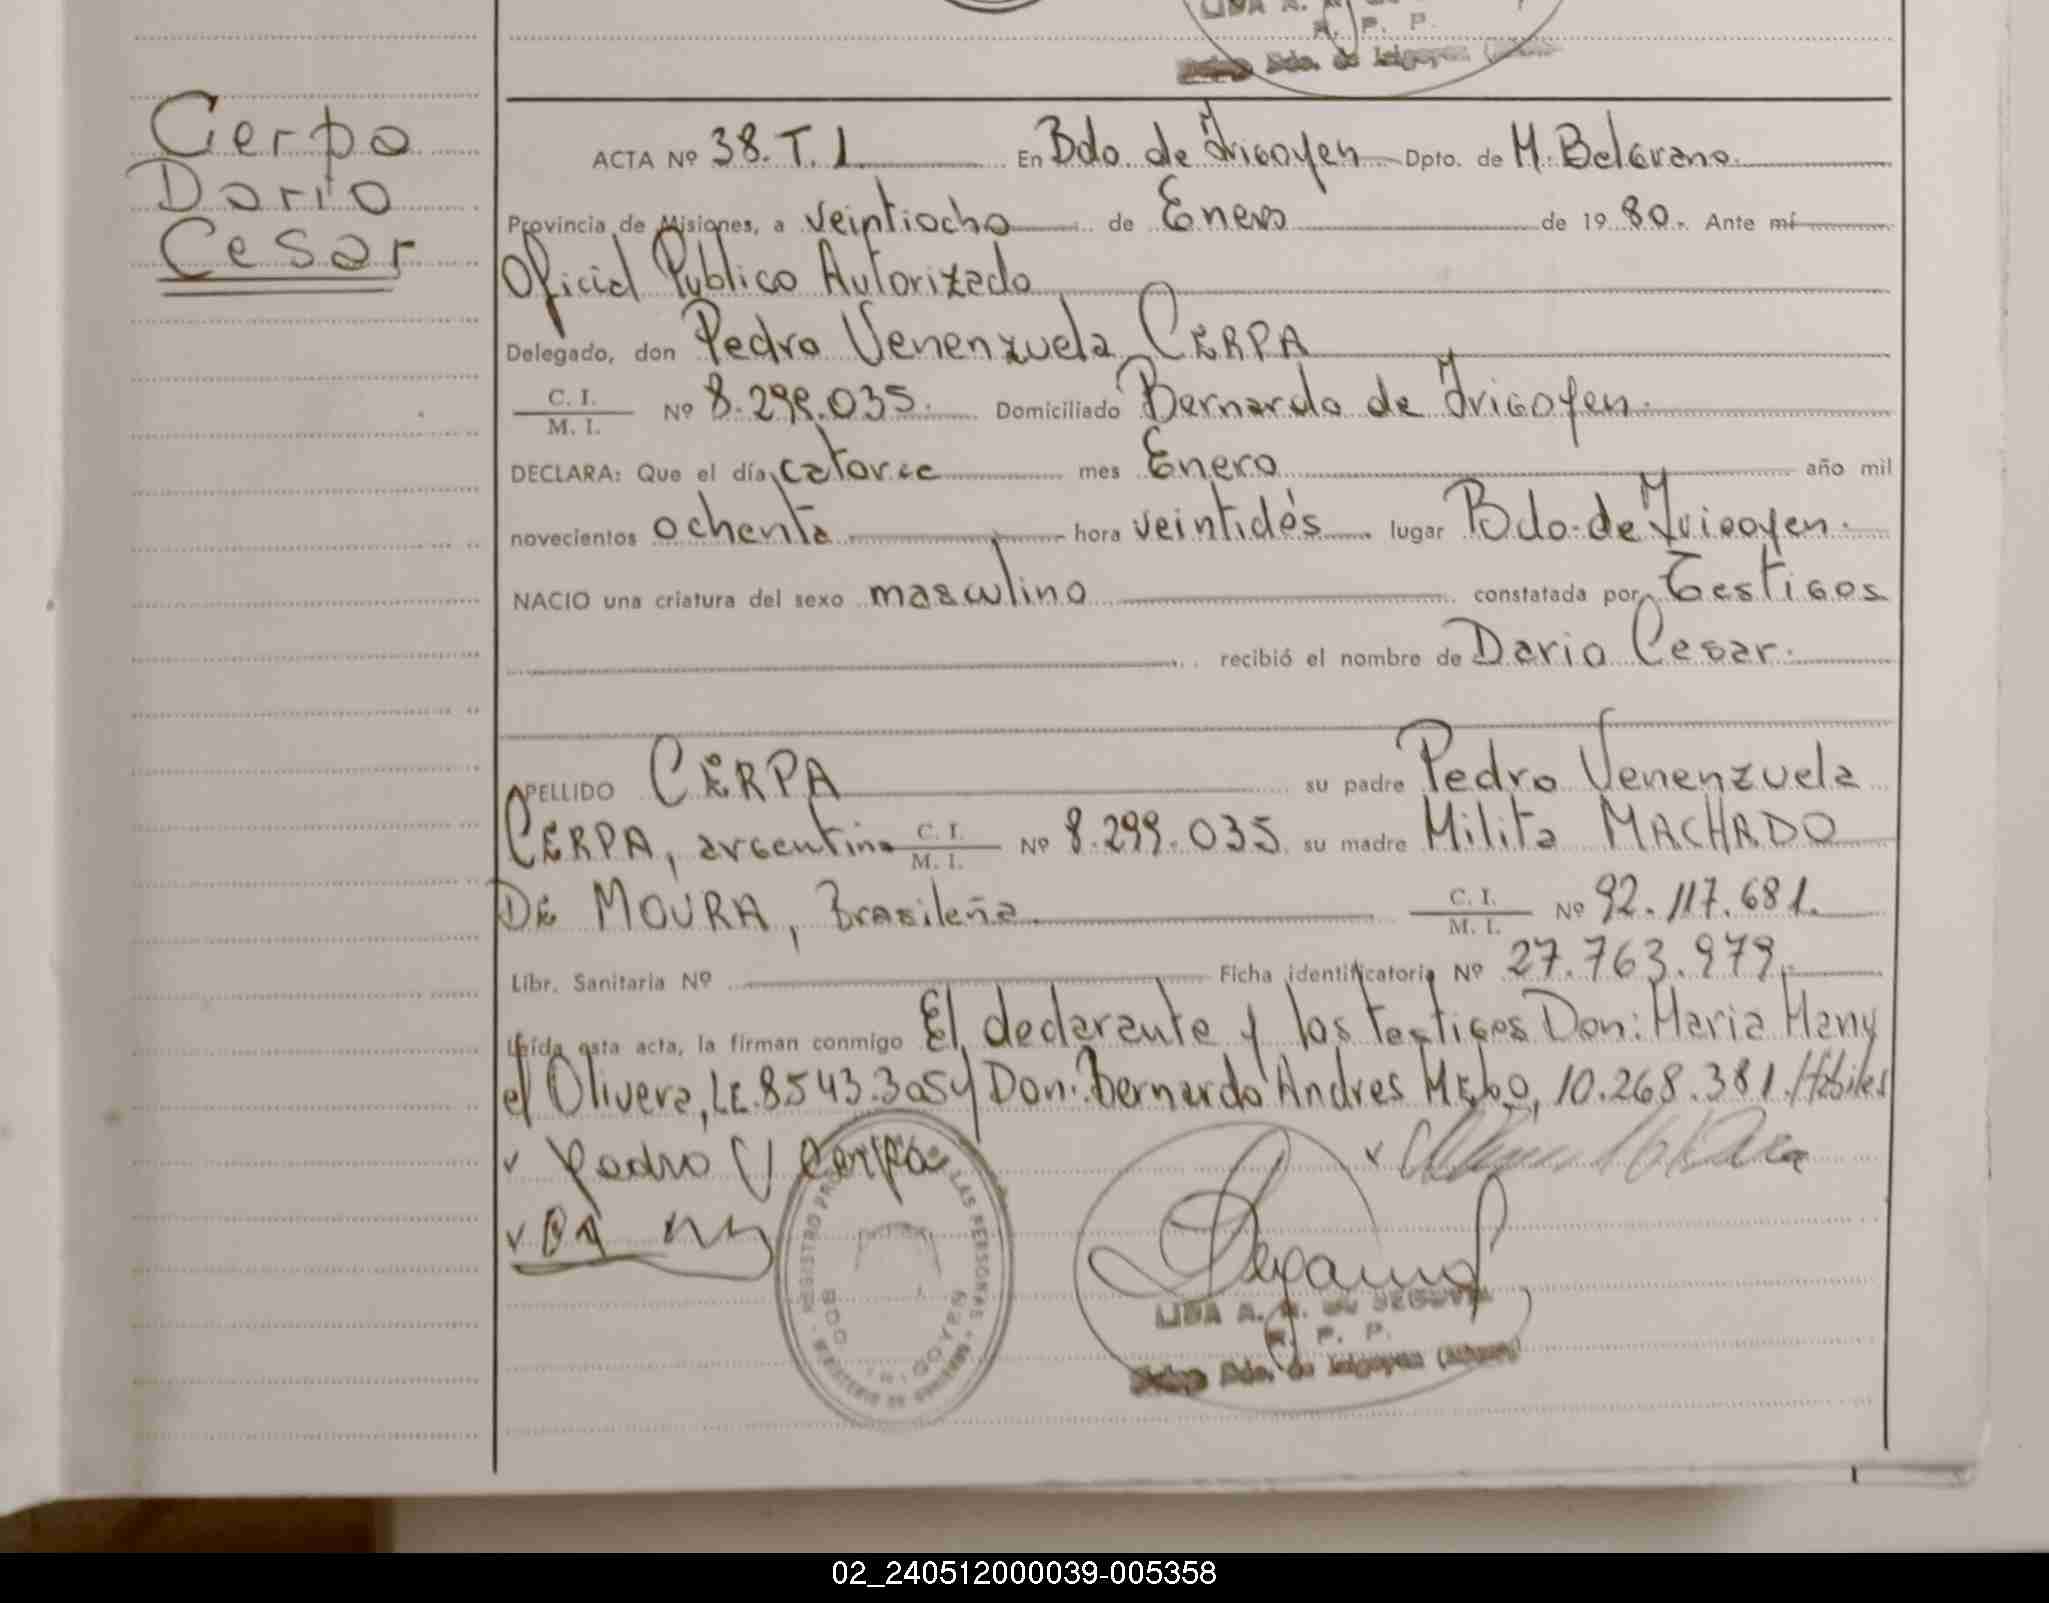 R. P. P.
Bdo. de Irigoyen
Cerpa
Dario
Cesar
ACTA Nº 38. T. I En Bdo. de Irigoyen Dpto. de M. Belgrano
Provincia de Misiones, a veintiocho de Enero de 19 80. Ante mí
Oficial Publico Autorizado
Delegado, don Pedro Venenzuela CERPA
C. I.
M. I. Nº 8.299.035. Domiciliado Bernardo de Irigoyen.
DECLARA: Que el día catorce mes Enero año mil
novecientos ochenta hora veintidós lugar Bdo. de Irigoyen.
NACIO una criatura del sexo masculino constatada por Testigos
recibió el nombre de Dario Cesar.
APELLIDO CERPA su padre Pedro Venenzuela
CERPA, argentino C. I. M. I. Nº 8.299.035 su madre Milita MACHADO
DE MOURA, Brasileña. C. I. M. I. Nº 92.117.681.
Libr. Sanitaria Nº Ficha identificatoria Nº 27.763.979.
Leída esta acta, la firman conmigo El declarante y los testigos Don: Maria Many
el Olivera, LE. 8543.305 y Don: Bernardo Andres 10.268.381. Hábiles
Pedro V Cerpa
REGISTRO LAS PERSONAS
BDO. IRIGOYEN
MINISTERIO DE GOBIERNO
LIDA A.
R. P. P.
Bdo. de Irigoyen
02_240512000039-005358